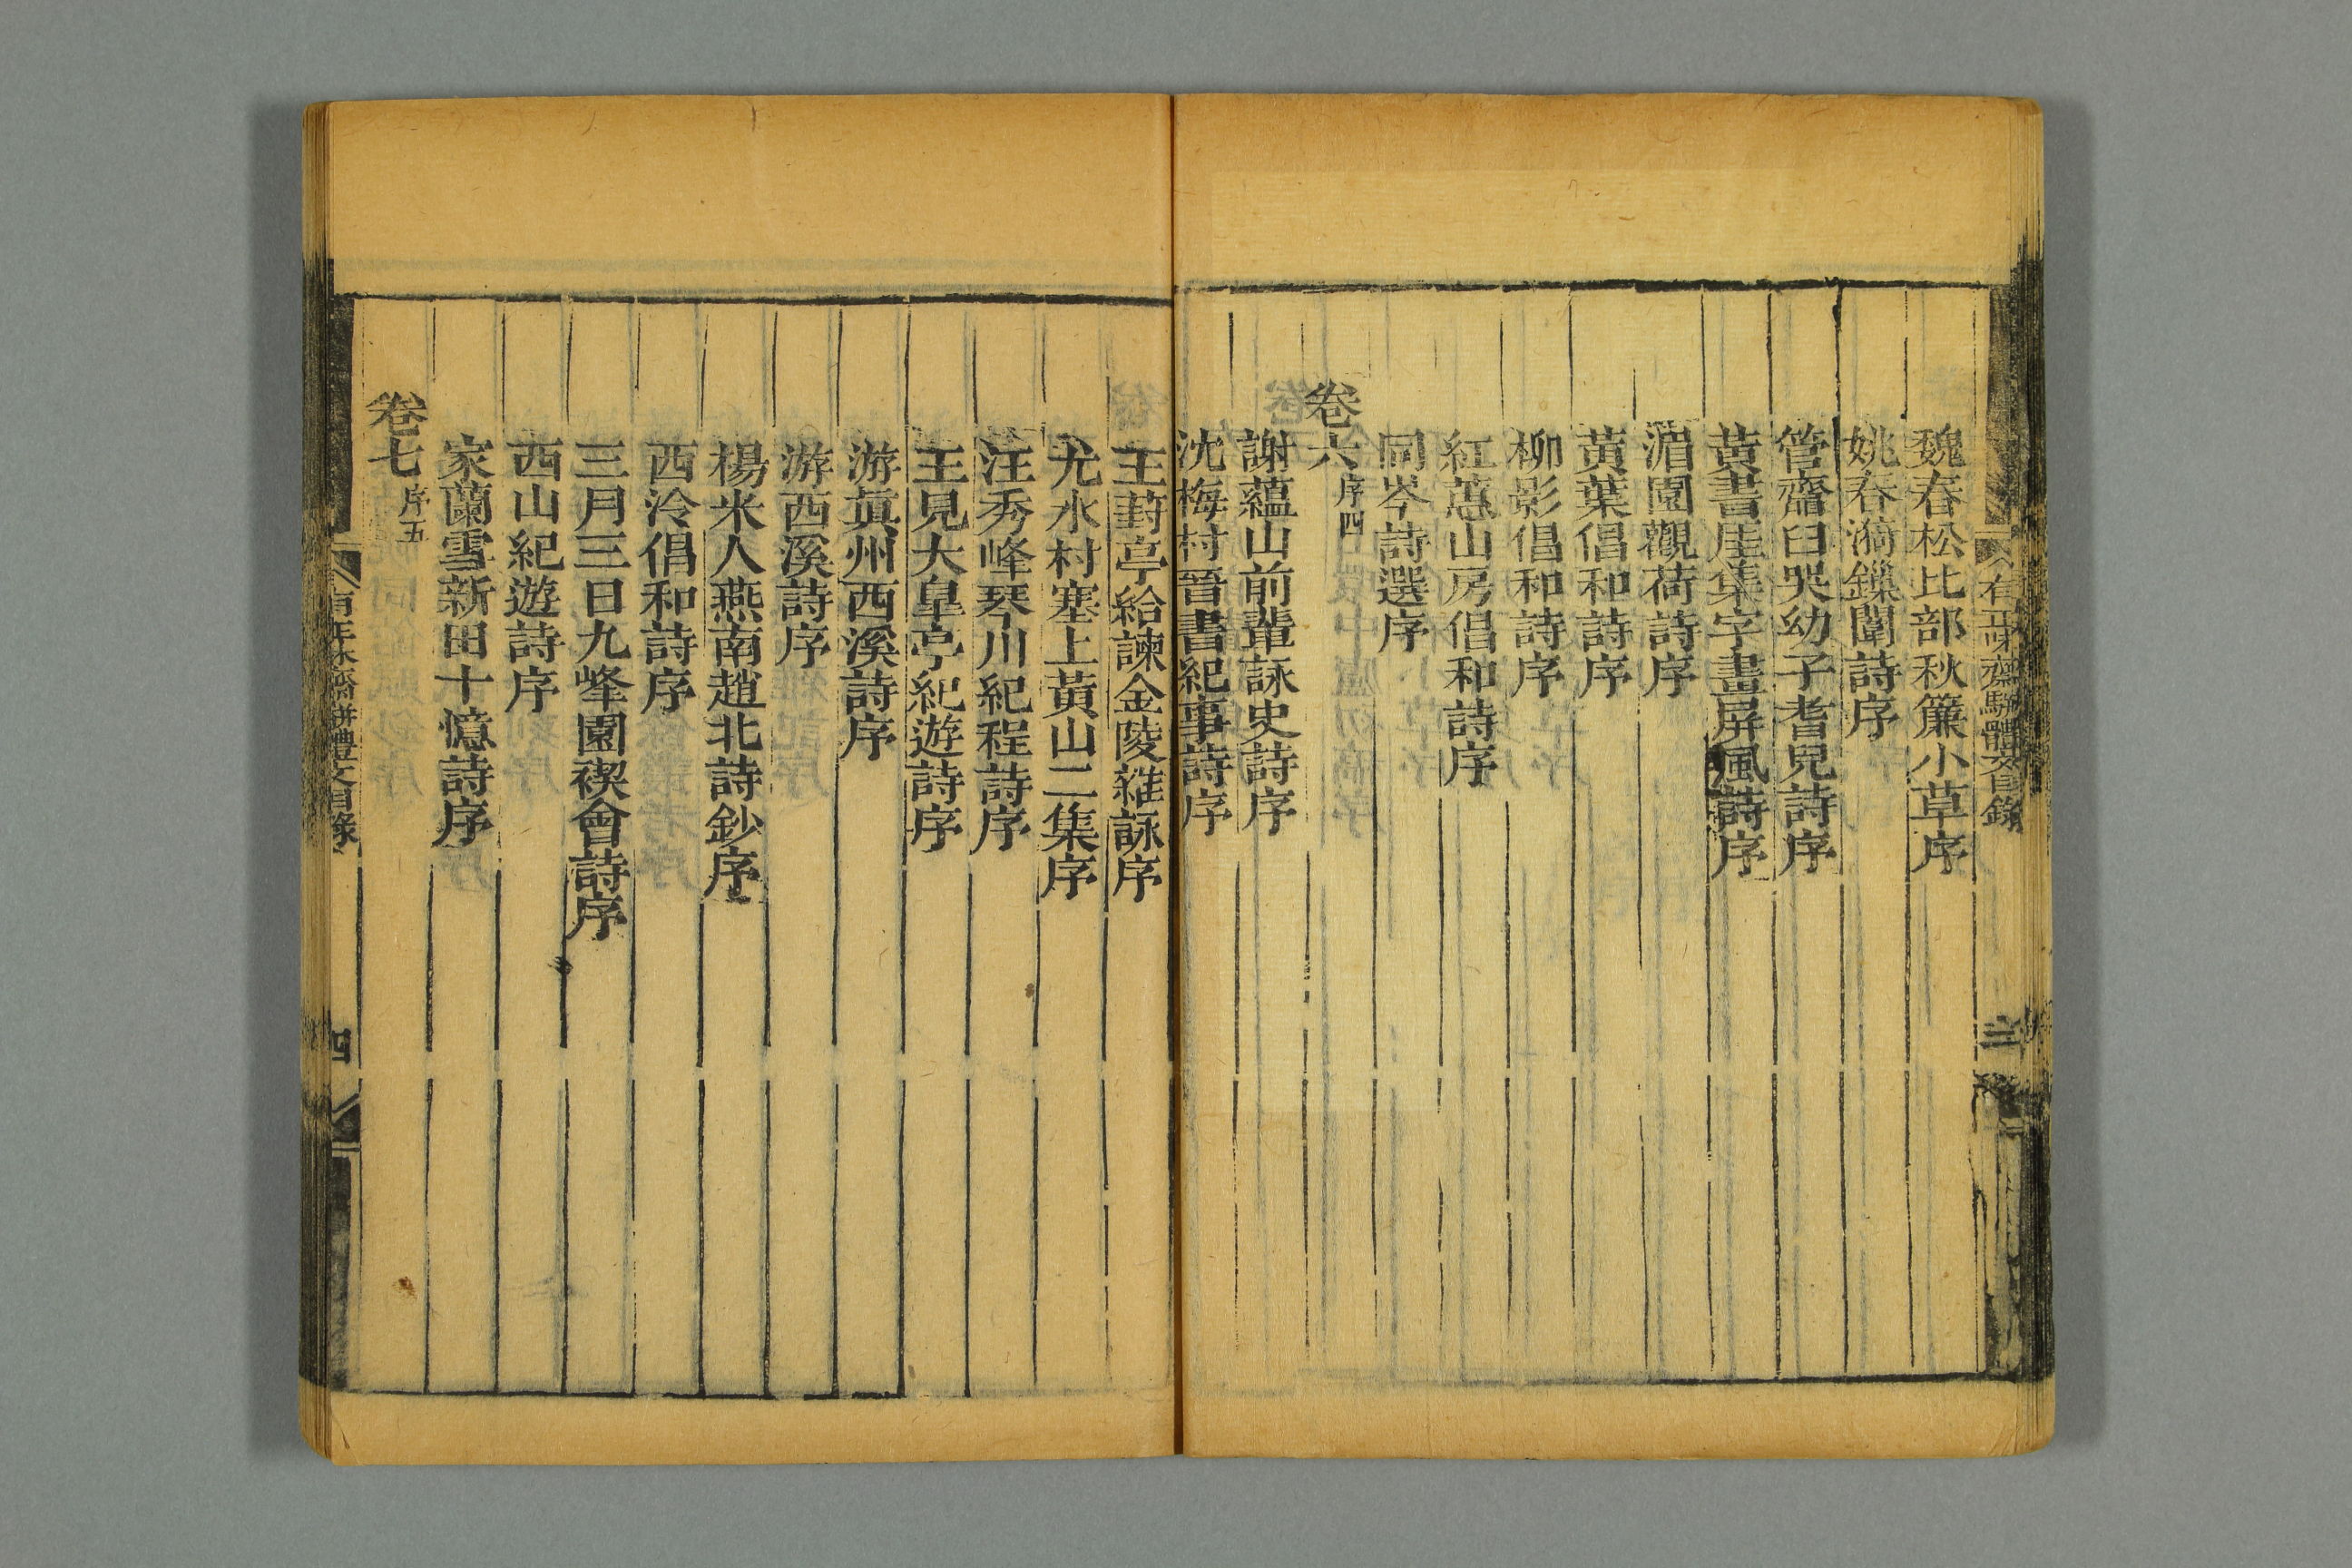 有正味齋駢體文目錄
三
魏春松比部秋簾小草序
姚春漪鎖闈詩序
管齋臼哭幼子耆兒詩序
黃書厓集字畫屏風詩序
湄園觀荷詩序
黃葉倡和詩序
柳影倡和詩序
紅蕙山房倡和詩序
同岑詩選序
卷六序四
謝蘊山前輩詠史詩序
沈梅村晉書紀事詩序
王葑亭給諫金陵雜詠序
尤水村塞上黃山二集序
汪秀峰琴川紀程詩序
王見大皐亭紀遊詩序
游眞州西溪詩序
游西溪詩序
楊米人燕南趙北詩鈔序
西泠倡和詩序
三月三日九峰園禊會詩序
西山紀遊詩序
家蘭雪新田十憶詩序
卷七序五
有正味齋駢體文目錄
四